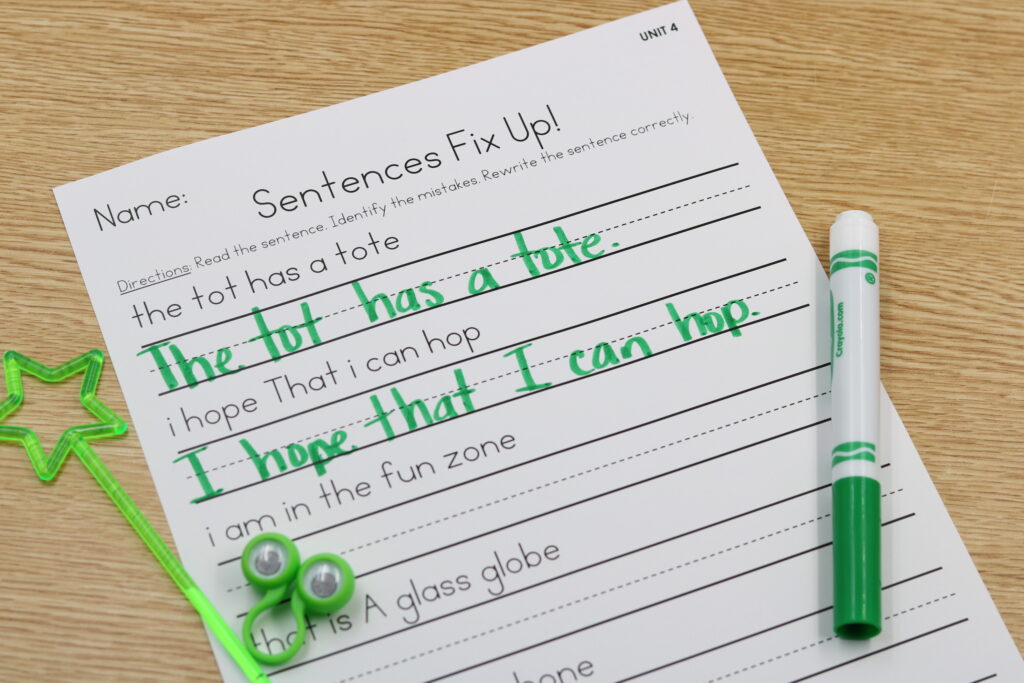 UNIT 4
Name:
Sentences Fix Up!
Directions: Read the sentence. Identify the mistakes. Rewrite the sentence correctly.
the tot has a tote
The tot has a tote.
i hope That i can hop
I hope that I can hop.
i am in the fun zone
that is A glass globe
Crayola.com